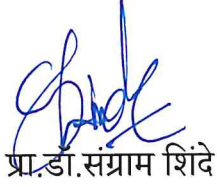 प्रा.डॉ.संग्राम शिंदे